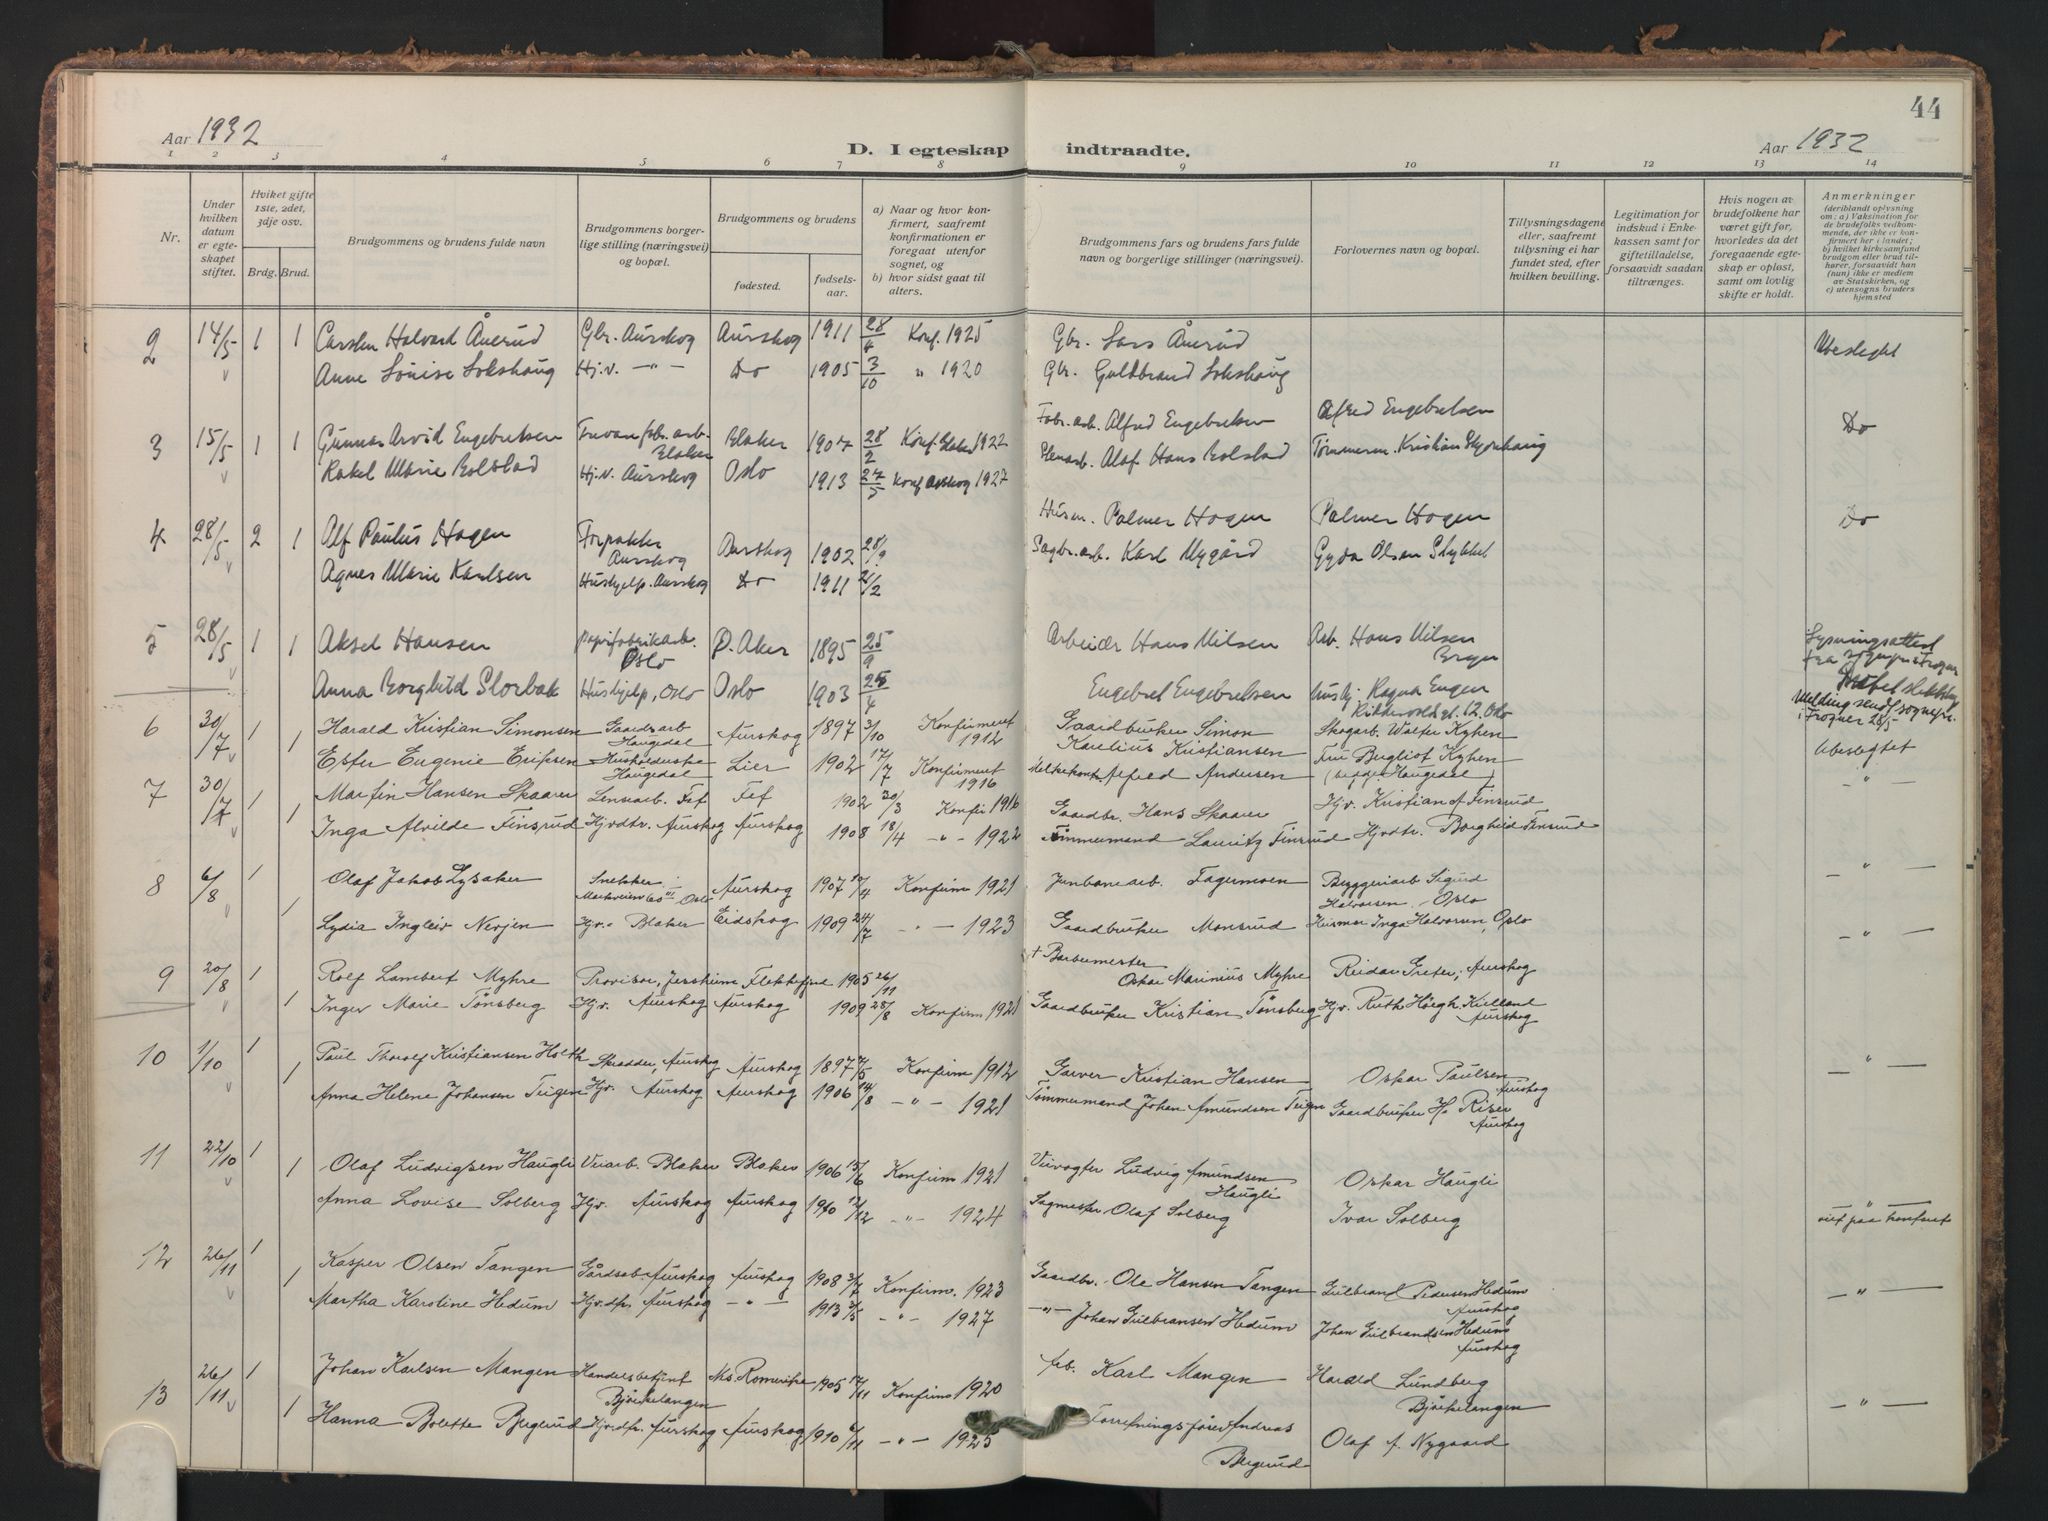 44
Aar 1932
D. I egteskap indtraadte.
Aar 1932
1 2 3 4 5 6 7 8 9 10 11 12 13 14
Nr.
Under hvilken datum er egteskapet stiftet.
Hvilket gifte 1ste, 2det, 3dje osv.
Brdg. Brud.
Brudgommens og brudens fulde navn
Brudgommens borgerlige stilling (næringsvei) og bopæl.
Brudgommens og brudens
fødested.
fødselsaar.
a) Naar og hvor konfirmert, saafremt konfirmationen er foregaat utenfor sognet, og
b) hvor sidst gaat til alters.
Brudgommens fars og brudens fars fulde navn og borgerlige stillinger (næringsvei).
Forlovernes navn og bopæl.
Tillysningsdagene eller, saafremt tillysning ei har fundet sted, efter hvilken bevilling.
Legitimation for indskud i Enkekassen samt for giftetilladelse, forsaavidt saadan tiltrænges.
Hvis nogen av brudefolkene har været gift før, hvorledes da det foregaaende egteskap er opløst, samt om lovlig skifte er holdt.
Anmerkninger (deriblandt oplysning om: a) Vaksination for de brudefolks vedkommende, der ikke er konfirmert her i landet; b) hvilket kirkesamfund brudgom eller brud tilhører, forsaavidt han (hun) ikke er medlem av Statskirken, og c) utensogns bruders hjemsted
2 14/5 1 1 Carsten Halvard Ånerud Gbr. Aurskog Aurskog 1911 28/4 Konf. 1925 Gbr. Lars Ånerud Ubeslegtet
Anne Louise Lokshaug Hj.v. -"- Do 1905 3/10 " 1920 Gbr. Guldbrand Lokshaug
3 15/5 1 1 Gunnar Arvid Engebretsen Blaker Blaker 1907 28/2 Konf. Blaker 1922 Fabr.arb. Alfred Engebretsen Alfred Engebretsen Do
Rakel Marie Bolstad Hj.v. Aurskog Oslo 1913 27/5 Konf Aurskog 1927 Olaf Hans Bolstad Tømmerm. Kristian
4 28/5 2 1 Alf Paulus Hagen Forpakter Aurskog Aurskog 1902 28/9 Husm. Palmer Hagen Palmer Hagen Do
Agnes Marie Karlsen Hushjelp. Aurskog Do 1911 2/2 Sagbr.arb. Karl Nygård Gyda Olsen
5 28/5 1 1 Aksel Hansen papirfabrikarb. Oslo Ø. Aker 1895 25/9 Arbeider Hans Nilsen Arb. Hans Nilsen Lysningsattest fra sogneprest Frogner
Anna Borghild Storbak Hushjelp, Oslo Oslo 1903 25/4 Engebret Engebretsen Ragna Engen Riddervoldsgt. 12. Oslo Melding sendt sognepr. i Frogner 28/5
6 30/7 1 1 Harald Kristian Simonsen Gaardsarb Haugedal Aurskog 1897 3/10 Konfirmert 1912 Gaardbruker Simon Karelius Kristiansen Skogarb. Walter Kyhen Ubeslegtet
Ester Eugenie Eriksen Husholderske Haugedal Lier 1902 17/7 Konfirmert 1916 Alfred Andersen Fru Bugliot Kyhen (begge Haugedal)
7 30/7 1 1 Martin Hansen Skaarer Lensarb. Fet Fet 1902 20/3 Konfir 1916 Gaardbr. Hans Skaarer Hjv. Kristian A Finsrud -"-
Inga Alvilde Finsrud Hjvdtr. Aurskog Aurskog 1908 18/4 -"- 1922 Tømmermand Lauritz Finsrud Hjvdtr. Borghild Finsrud
8 6/8 1 1 Olaf Jakob Lysaker Snekker Markveien 60 III Oslo Aurskog 1907 10/4 Konfirm 1921 Junbanearb. Fagermoen Byggeriarb Sigurd Halvorsen. Oslo -"-
Lydia Ingleiv Nerjen Hjv. Blaker Eidskog 1909 24/7 -"- 1923 Gaardbruker Monsrud Inga Halvorsen, Oslo -"-
9 20/8 1 1 Rolf Lambert Myhre Provisor, Jessheim Flekkefjord 1905 26/11 + Barbermester Oskar Marinius Myhre Reidar Greter, Aurskog
Inger Marie Tønsberg Hjv. Aurskog Aurskog 1909 28/8 Konfirm 1921 Gaardbruker Kristian Tønsberg Hjv. Ruth Høegh Kielland Aurskog
10 1/10 1 1 Paul Thoralf Kristiansen Holth Skrædder, Aurskog Aurskog 1897 7/5 Konfirm 1912 Garver Kristian Hansen Oskar Paulsen Aurskog -"-
Anna Helene Johansen Teigen Hjv. Aurskog Aurskog 1906 14/8 -"- 1921 Tømmermand Johan Amundsen Teigen Gaardbruker H. Riser Aurskog
11 22/10 1 1 Olaf Ludvigsen Haugli Veiarb. Blaker Blaker 1906 15/6 Konfirm 1921 Veivogter Ludvig Amundsen Haugli Oskar Haugli
Anna Lovise Solberg Hjv. Aurskog Aurskog 1910 12/12 -"- 1924 Sagmester Olaf Solberg Ivar Solberg -"- viet paa kontoret
12 26/11 1 1 Kasper Olsen Tangen Gårdsarb. Aurskog Aurskog 1908 31/7 Konfirm. 1923 Gaardbr. Ole Hansen Tangen Gulbrand Pedersen Hedum Aurskog -"-
Martha Karoline Hedum Hjv.dtr. Aurskog -"- 1913 3/5 -"- 1927 -"- Johan Gulbransen Hedum Johan Gulbrandsen Hedum Aurskog
13 26/11 1 1 Johan Karlsen Mangen Handelsbetjent Bjørkelangen Ns. Romerike 1905 17/11 Konfirm 1920 Arb. Karl Mangen Harald Lundberg Bjørkelangen -"-
Hanna Bolette Bergerud Hjvdtr. Aurskog Aurskog 1910 6/11 -"- 1925 Forretningsfører Andreas Bergerud Olaf A. Nygaard